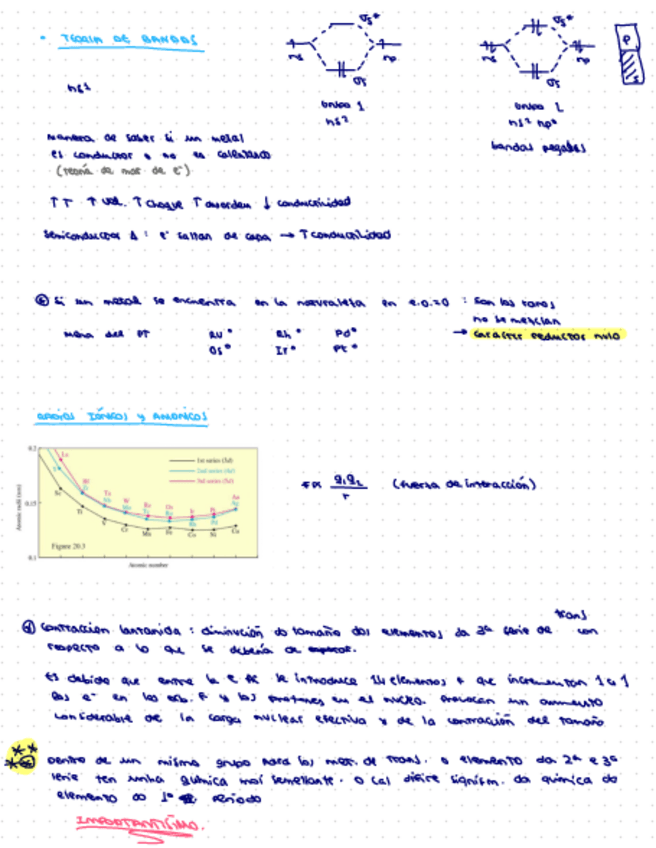 • TEORÍA DE BANDAS
ns¹
σs*
ns
np
σs
Grupo 1
ns²
σs*
ns
np
σs
Grupo 2
ns² np⁰
bandas pegadas
P
manera de saber si un metal
es conductor o no es calentando
(teoría de mar de e⁻)
↑T ↑ vol. ↑ choque ↑ desorden ↓ conductividad
Semiconductor Δ : e⁻ saltan de capa → ↑ conductividad
Si un metal se encuentra en la naturaleza en e.o.=0 : son los raros
no se mezclan
→ carácter reductor nulo
mena del PT
Ru° Rh° Pd°
Os° Ir° Pt°
RADIOS IÓNICOS y ATÓMICOS
0.2
0.15
0.1
Atomic radii (nm)
1st series (3d)
2nd series (4d)
3rd series (5d)
La
Sc
Ti
V
Cr
Mn
Fe
Co
Ni
Cu
Figure 20.3
Atomic number
F α q₁q₂
r
(fuerza de interacción)
Contracción lantánida : diminución do tamaño dos elementos da 3ª serie de trans con
respecto a lo que se debería de esperar.
Es debido que entre la e Hf se introduce 14 elementos f que incrementan 1 a 1
los e⁻ en los orb. f y los protones en el núcleo. Provocan un aumento
considerable de la carga nuclear efectiva y de la contracción del tamaño
** Dentro de un mismo grupo para los met. de trans. o elemento da 2ª e 3ª
serie ten unha química moi semellante. o cal difire signifm. da química do
elemento do 1º período
IMPORTANTÍSIMO.